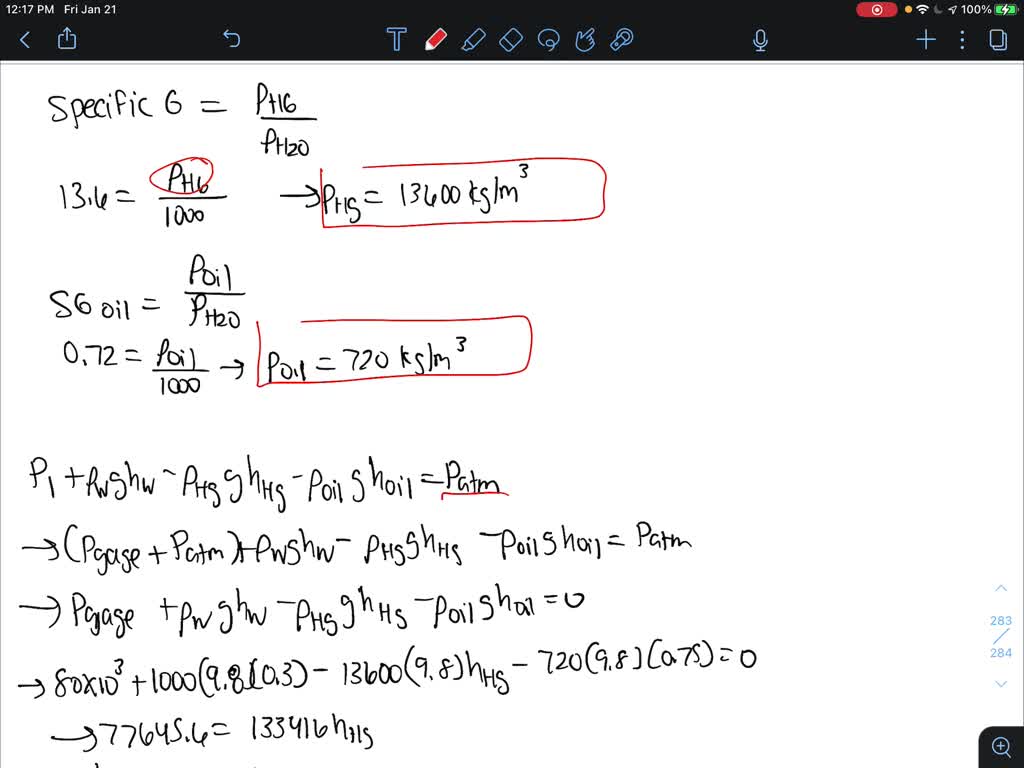 12:17 PM Fri Jan 21
100%
T
Specific G = PHG / PH2O
13.6 = PHG / 1000 → PHg = 13600 kg/m³
SG oil = Poil / PH2O
0.72 = Poil / 1000 → Poil = 720 kg/m³
P1 + Pwghw - PHgghHg - Poilghoil = Patm
→ (Pgage + Patm) + Pwghw - PHgghHg - Poilghoil = Patm
→ Pgage + Pwghw - PHgghHg - Poilghoil = 0
→ 80x10³ + 1000(9.8)(0.3) - 13600(9.8)hHg - 720(9.8)(0.75) = 0
→ 77645.6 = 133416hHg
283
/
284